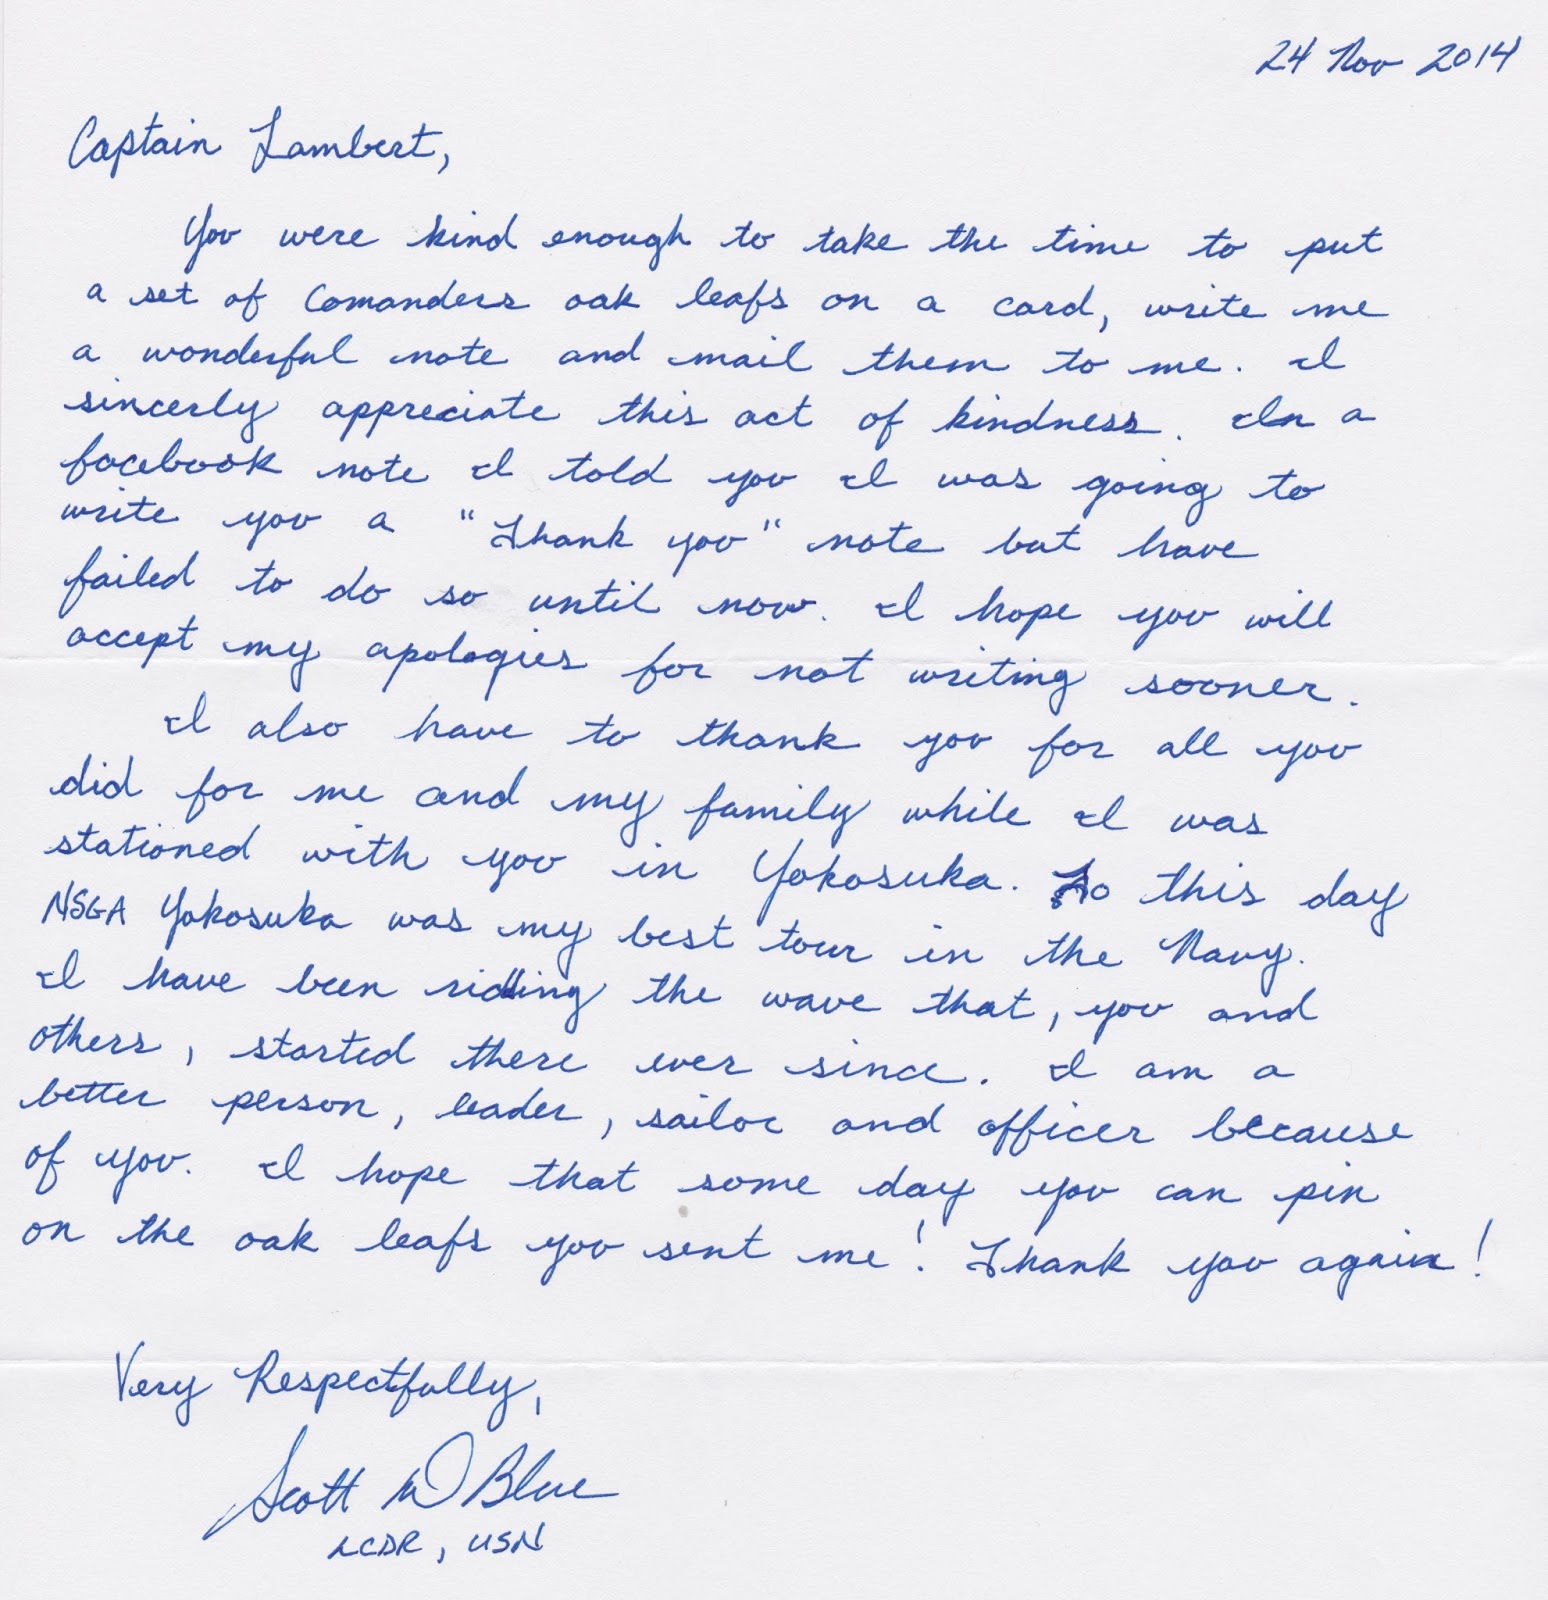 24 Nov 2014
Captain Lambert,
You were kind enough to take the time to put
a set of Comanders oak leafs on a card, write me
a wonderful note and mail them to me. I
sincerly appreciate this act of kindness. In a
facebook note I told you I was going to
write you a "Thank you" note but have
failed to do so until now. I hope you will
accept my apologies for not writing sooner.
I also have to thank you for all you
did for me and my family while I was
stationed with you in Yokosuka. To this day
NSGA Yokosuka was my best tour in the Navy.
I have been riding the wave that, you and
others, started there ever since. I am a
better person, leader, sailor and officer because
of you. I hope that some day you can pin
on the oak leafs you sent me! Thank you again!
Very Respectfully,
Scott W Blue
LCDR, USN